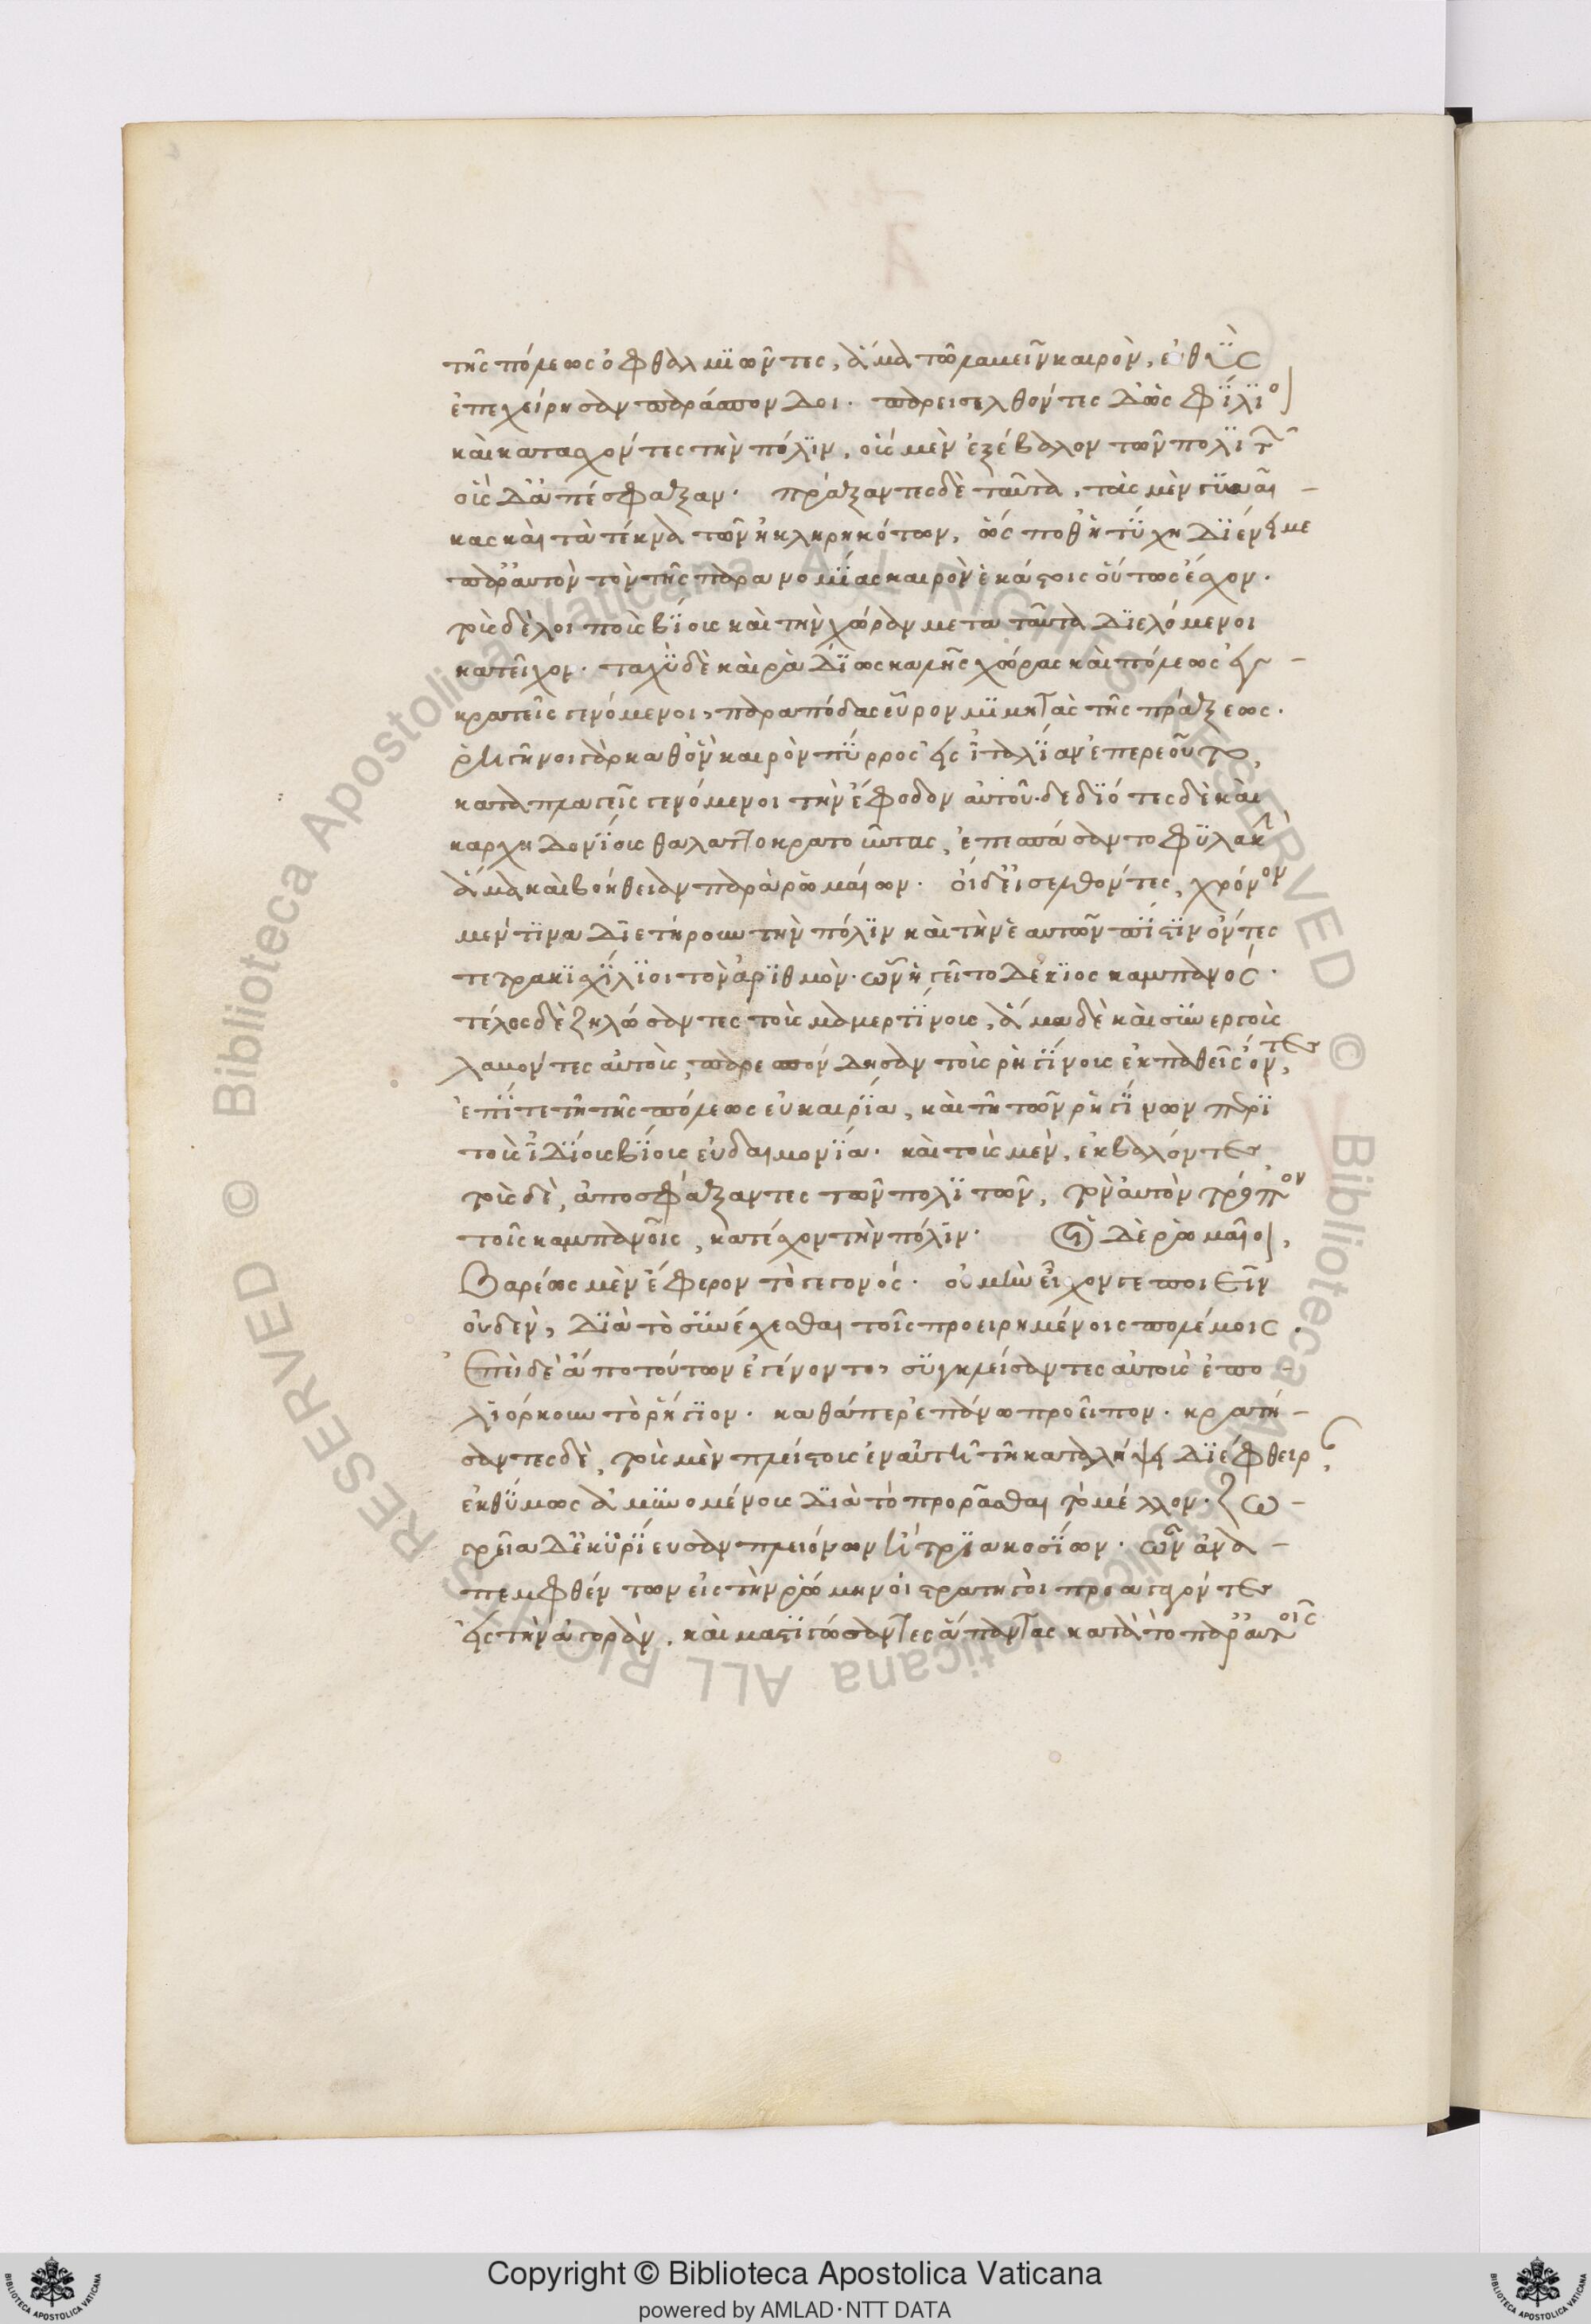 τῆς πόλεως ὀφθαλμιῶντες, ἅμα τῶ λαβεῖν καιρὸν, εὐθὺς
ἐπεχείρησαν παράσπονδοι. παρεισελθόντες δ' ὡς φίλιοι
καὶ κατασχόντες τὴν πόλιν, οὓς μὲν ἐξέβαλον τῶν πολιτῶν
οὓς δ' ἀπέσφαξαν. πράξαντες δὲ ταῦτα, τὰς μὲν γυναῖ-
κας καὶ τὰ τέκνα τῶν ἠκληρηκότων, ὥς ποθ' ἡ τύχη διένειμε
παρ' αὐτὸν τὸν τῆς παρανομίας καιρὸν ἑκάστοις οὕτως ἔσχον.
τοὺς δὲ λοιποὺς βίους καὶ τὴν χώραν μετὰ ταῦτα διελόμενοι
κατεῖχον. ταχὺ δὲ καὶ ῥαδίως καλῆς χώρας καὶ πόλεως ἐγ-
κρατεῖς γενόμενοι, παρὰ πόδας εὗρον μιμητὰς τῆς πράξεως.
ῥηγῖνοι γὰρ καθ' ὃν καιρὸν πύρρος εἰς ἰταλίαν ἐπεραιοῦτο,
καταπλαγεῖς γενόμενοι τὴν ἔφοδον αὐτοῦ. δεδιότες δὲ καὶ
καρχηδονίους θαλαττοκρατοῦντας, ἐπεσπάσαντο φυλακὴν
ἅμα καὶ βοήθειαν παρὰ ῥωμαίων. οἱ δ' εἰσελθόντες, χρόνον
μέν τινα διετήρουν τὴν πόλιν καὶ τὴν ἑαυτῶν πίστιν ὄντες
τετρακισχίλιοι τὸν ἀριθμὸν. ὧν ἡγεῖτο δέκιος καμπανός.
τέλος δὲ ζηλώσαντες τοὺς μαμερτίνους, ἅμα δὲ καὶ συνεργοὺς
λαβόντες αὐτοὺς, παρεσπόνδησαν τοὺς ῥηγίνους ἐκπαθεῖς ὄντες,
ἐπί τε τῆ τῆς πόλεως εὐκαιρία, καὶ τῆ τῶν ῥηγίνων περὶ
τοὺς ἰδίους βίους εὐδαιμονία. καὶ τοὺς μὲν, ἐκβαλόντες
τοὺς δὲ, ἀποσφάξαντες τῶν πολιτῶν, τὸν αὐτὸν τρόπον
τοῖς καμπανοῖς, κατέσχον τὴν πόλιν. οἱ δὲ ῥωμαῖοι,
βαρέως μὲν ἔφερον τὸ γεγονός. οὐ μὴν εἶχόν γε ποιεῖν
οὐδὲν, διὰ τὸ συνέχεσθαι τοῖς προειρημένοις πολέμοις.
ἐπεὶ δὲ ἀπὸ τούτων ἐγένοντο, συγκλείσαντες αὐτοὺς ἐπο-
λιόρκουν τὸ ῥήγιον. καθάπερ ἐπάνω προεῖπον. κρατή-
σαντες δὲ, τοὺς μὲν πλείστους ἐν αὐτῆ τῆ καταλήψει διέφθειραν,
ἐκθύμως ἀμυνομένους διὰ τὸ προορᾶσθαι τὸ μέλλον. ζω-
γρεία δ' ἐκυρίευσαν πλειόνων ἢ τριακοσίων. ὧν ἀνα-
πεμφθέντων εἰς τὴν ῥώμην οἱ στρατηγοὶ προαγαγόντες
εἰς τὴν ἀγορὰν, καὶ μαστιγώσαντες ἅπαντας κατὰ τὸ παρ' αὐτοῖς